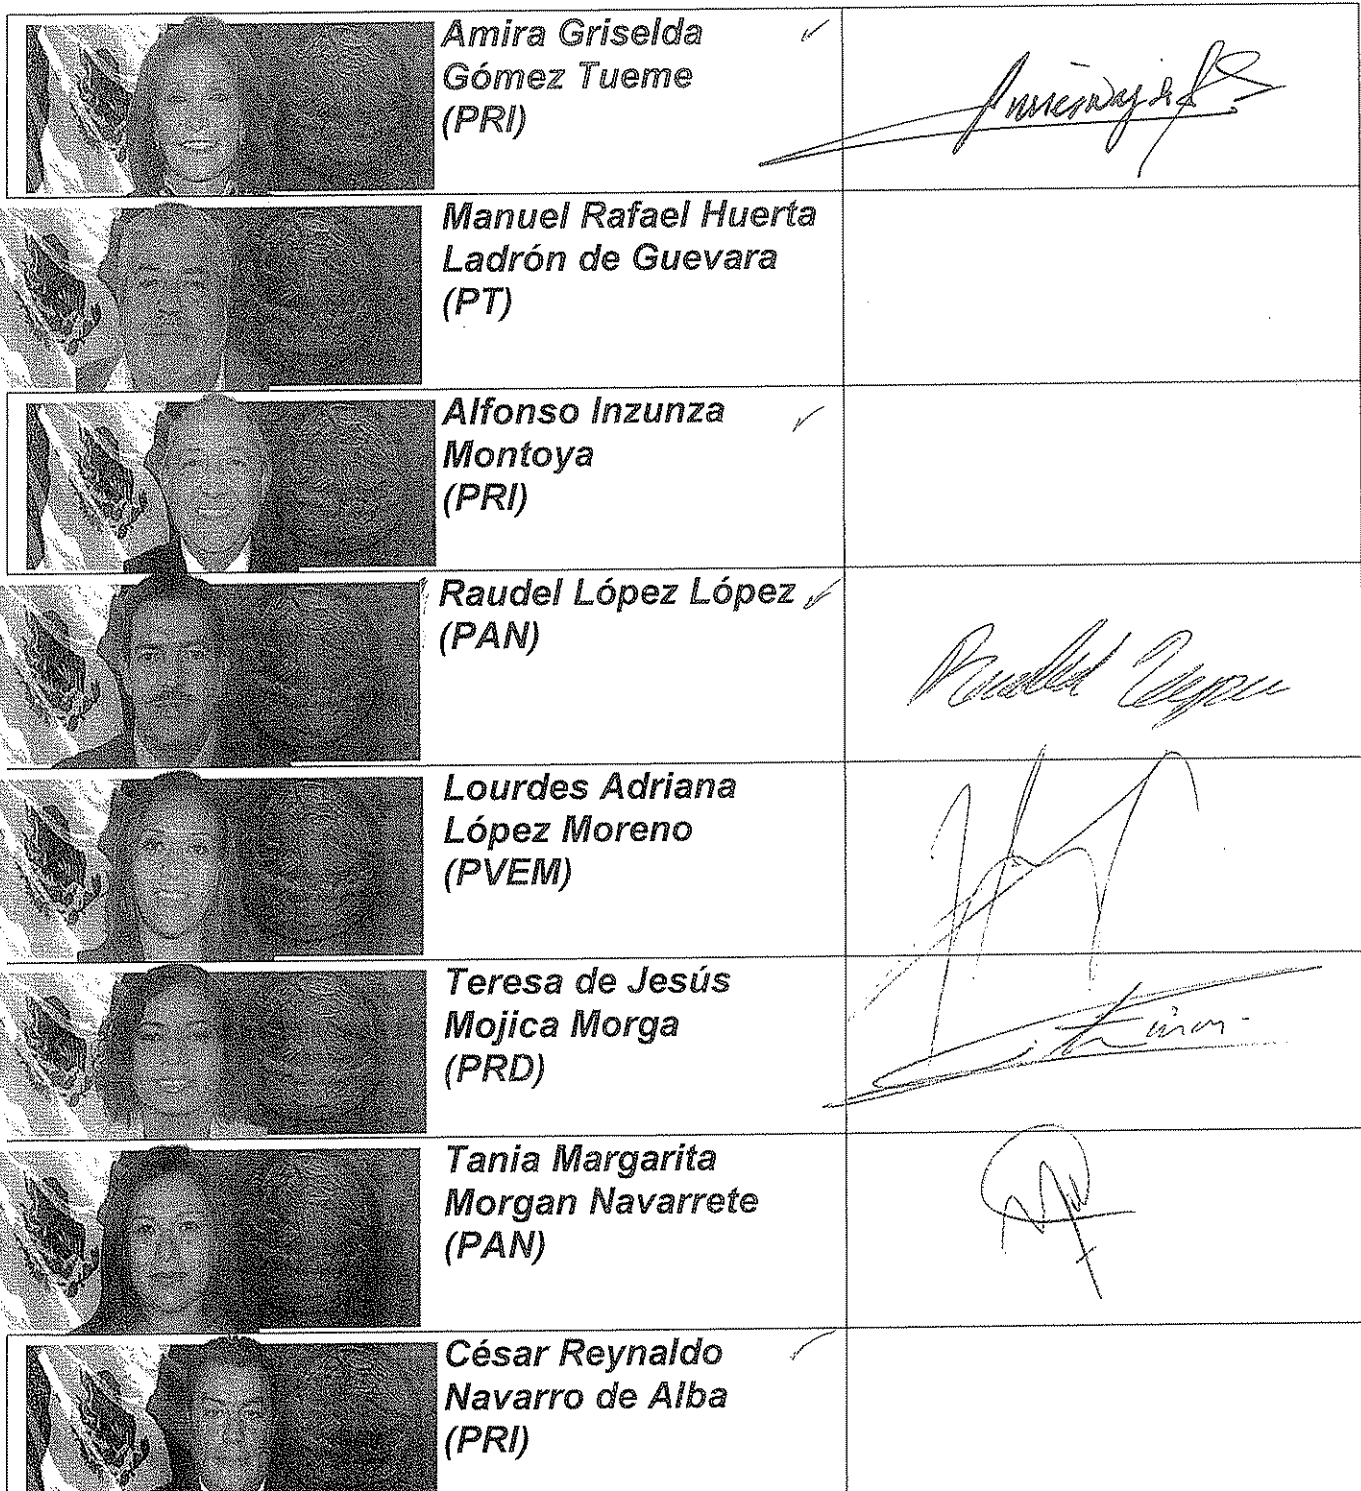 Amira Griselda
Gómez Tueme
(PRI)
Manuel Rafael Huerta
Ladrón de Guevara
(PT)
Alfonso Inzunza
Montoya
(PRI)
Raudel López López
(PAN)
Lourdes Adriana
López Moreno
(PVEM)
Teresa de Jesús
Mojica Morga
(PRD)
Tania Margarita
Morgan Navarrete
(PAN)
César Reynaldo
Navarro de Alba
(PRI)